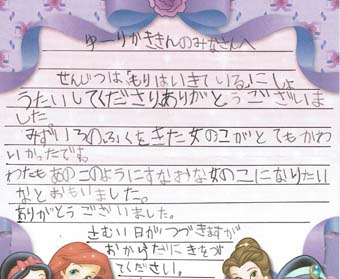 ゆーりかききんのみなさんへ
せんじつは、「もりはいきている」にしょ
うたいしてくださりありがとうございま
した。
みずいろのふくをきた女のこがとてもかわ
いかったです。
わたしもあのこのようにすなおな女のこになりたい
なとおもいました。
ありがとうございました。
さむい日がつづきますが
おからだにきをつけ
てください。